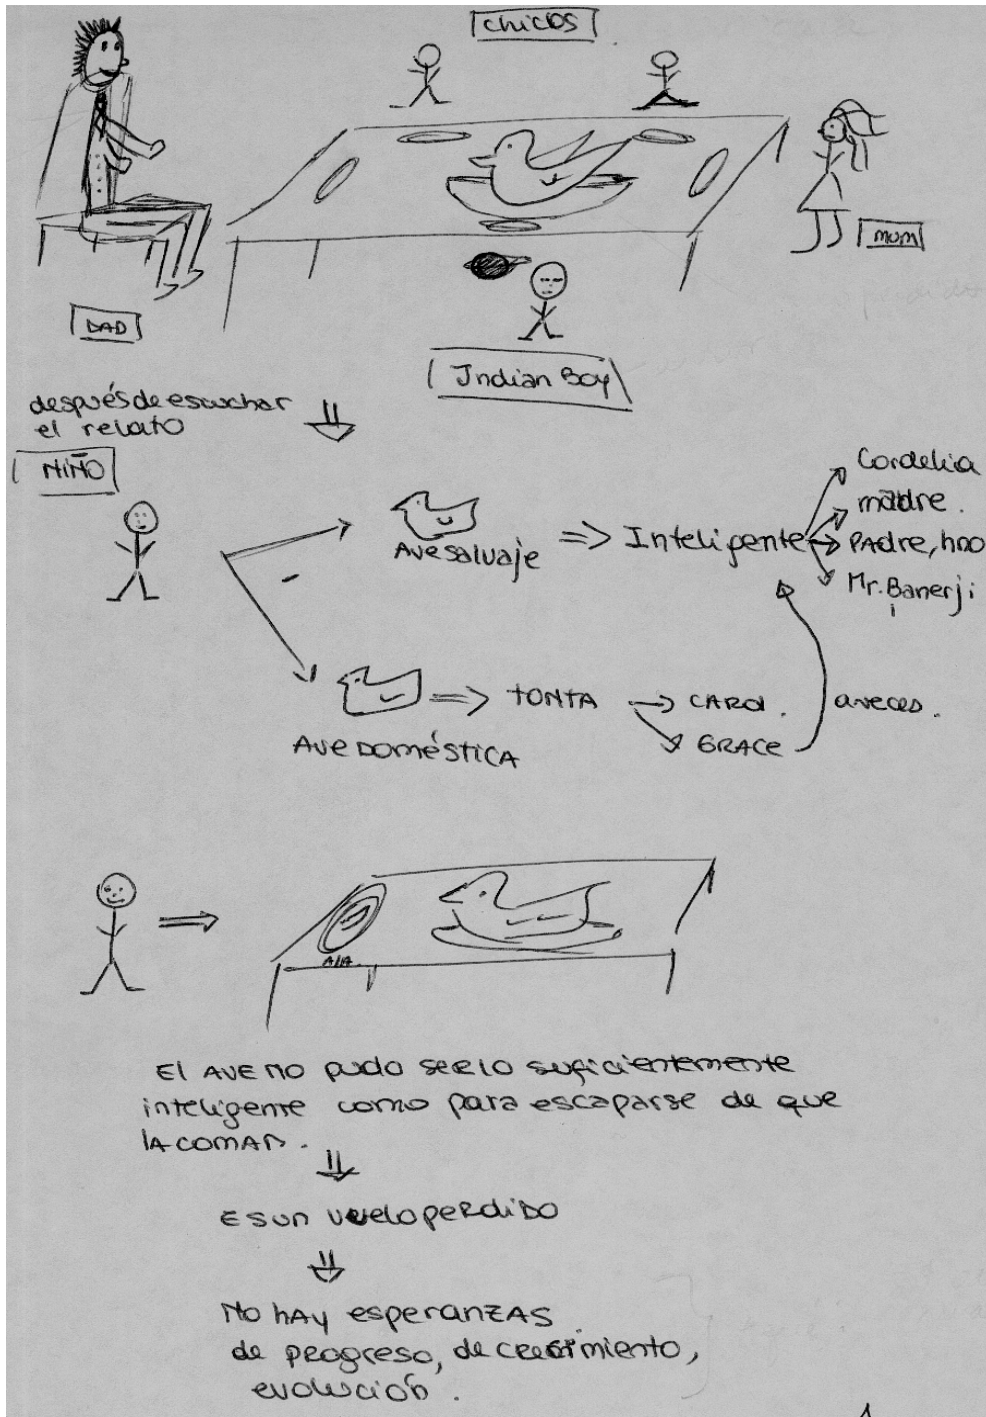 chicos
mum
DAD
Indian Boy
después de escuchar
el relato
NIÑO
Ave salvaje
Inteligente
Cordelia
madre.
PAdre, hno
Mr. Banerji
AVE DOméSTICA
TONTA
CARol.
GRACE
a veces.
AlA
El AVE no pudo ser lo suficientemente
inteligente como para escaparse de que
lA coman.
Es un vuelo perdido
No hay esperanzas
de progreso, de crecimiento,
evolución.